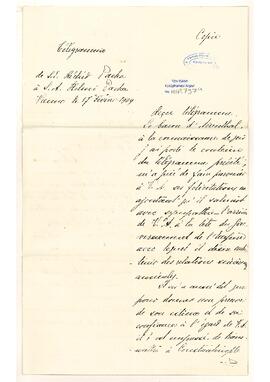 Copie
Télégramme
de S.E. Réchid Pacha
à S.A. Hilmi Pacha
Vienne le 17 février 1909
Reçu télégramme
Le baron d'Aerenthal,
à la connaissance de qui
j'ai porté le contenu
du télégramme précité,
m'a prié de faire parvenir
à V.A. ses félicitations en
ajoutant qu'il saluait
avec sympathie l'arrivée
de V.A. à la tête du gou-
vernement de l'Empire
avec lequel il désire entre-
tenir des relations sincères
amicales.
Il m'a aussi dit que
pour donner une preuve
de son estime et de sa
confiance à l'égard de V.A.
il s'est empressé de trans-
mettre à Constantinople